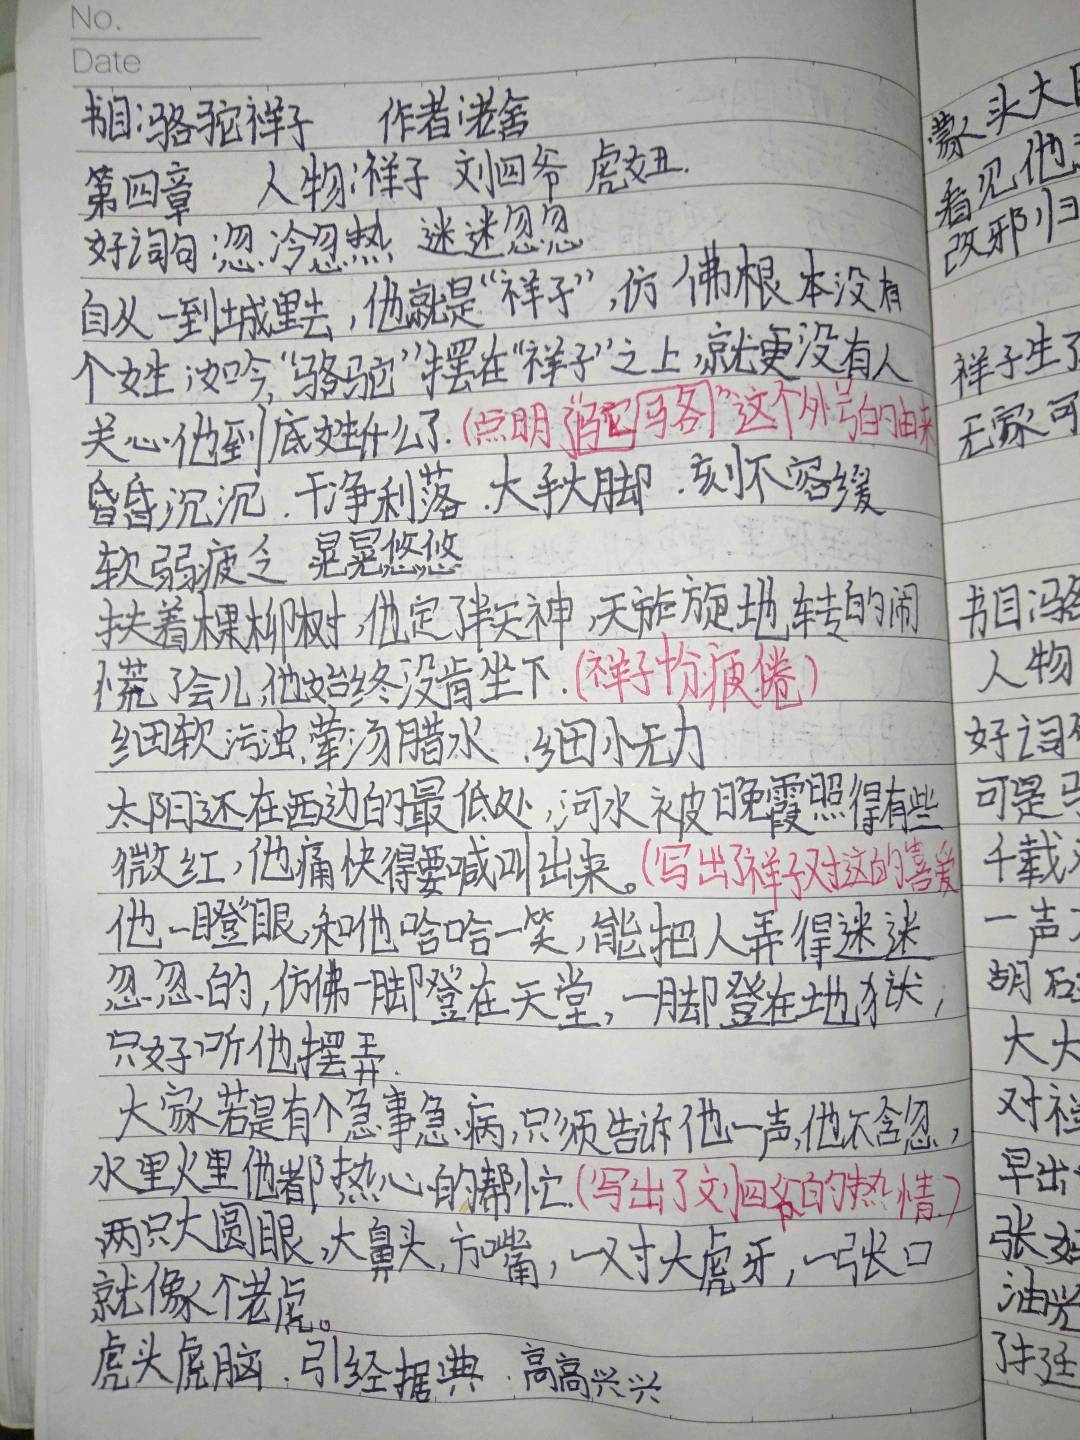 No.
Date
书目:骆驼祥子 作者:老舍
第四章 人物:祥子 刘四爷 虎妞.
好词句:忽冷忽热 迷迷忽忽
自从一到城里去,他就是“祥子”,仿佛根本没有
个姓;如今,“骆驼”摆在“祥子”之上,就更没有人
关心他到底姓什么了.(点明“骆驼”这个外号的由来
昏昏沉沉.干净利落.大手大脚.刻不容缓
软弱疲乏 晃晃悠悠
扶着棵柳树,他定了半天神,天旋地转的闹
慌了会儿,他始终没肯坐下.(祥子十分疲倦)
细软污浊.荤汤腊水.细小无力
太阳还在西边的最低处,河水被晚霞照得有些
微红,他痛快得要喊叫出来。(写出了祥子对这的喜爱
他一瞪眼,和他哈哈一笑,能把人弄得迷迷
忽忽的,仿佛一脚登在天堂,一脚登在地狱,
只好听他摆弄.
大家若是有个急事急病,只须告诉他一声,他不含忽,
水里火里他都热心的帮忙.(写出了刘四爷的热情.)
两只大圆眼,大鼻头,方嘴,一对大虎牙,一张口
就像个老虎。
虎头虎脑.引经据典.高高兴兴
蒙头大
看见他
改邪归
祥子生了
无家可
书目:骆
人物
好词
可是
千载
一声
胡
大大
对祥
早出
张
油